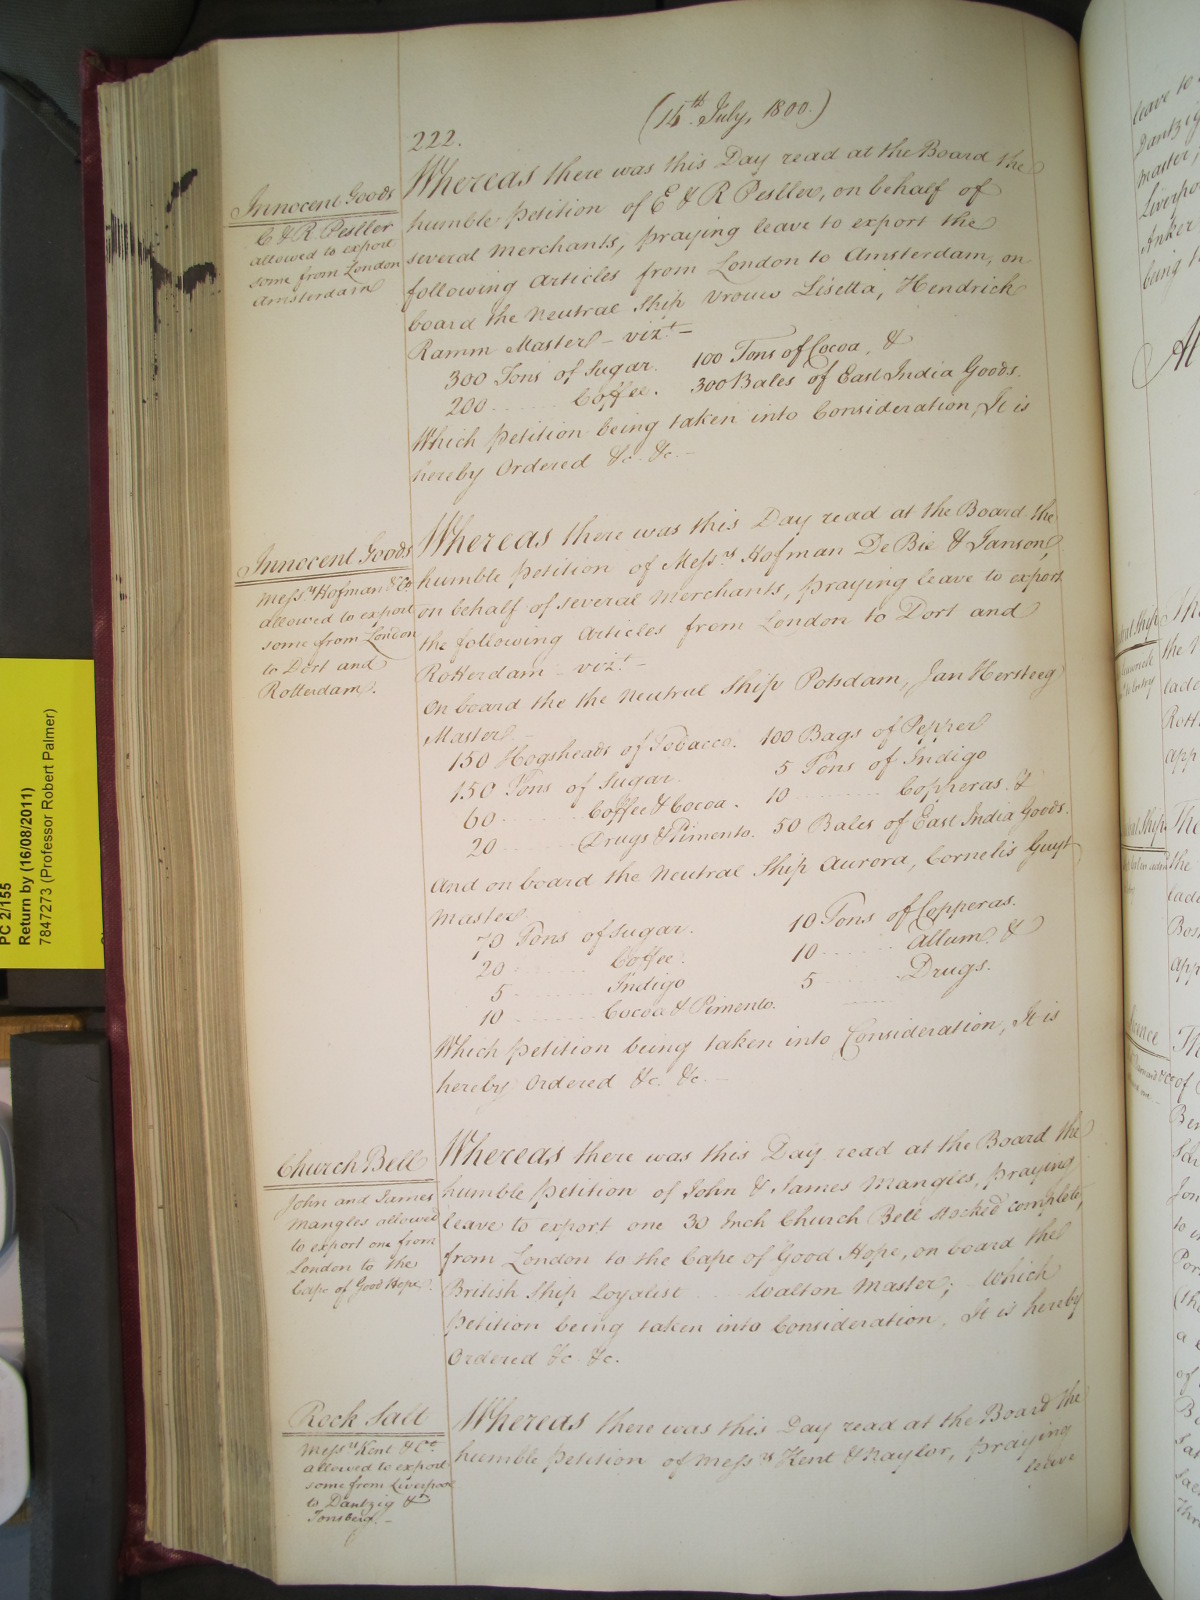 (14th July, 1800.)
222.
Innocent Goods
E & R Pestler
allowed to export
some from London
Amsterdam
Whereas there was this Day read at the Board the
humble Petition of E & R Pestler, on behalf of
several Merchants, praying leave to export the
following Articles from London to Amsterdam, on
board the Neutral Ship Vrouw Lisetta, Hendrick
Ramm Master - vizt. -
300 Tons of Sugar. 100 Tons of Cocoa, &
200 ...... Coffee. 300 Bales of East India Goods.
Which Petition being taken into Consideration, It is
hereby Ordered &c. &c. -
Innocent Goods
Messrs. Hofman & Co
allowed to export
some from London
to Dort and
Rotterdam.
Whereas there was this Day read at the Board the
humble Petition of Messrs. Hofman De Bie & Janson,
on behalf of several Merchants, praying leave to export
the following Articles from London to Dort and
Rotterdam - vizt. -
On board the the Neutral Ship Potsdam, Jan Hersteeg
Master. -
150 Hogsheads of Tobacco. 100 Bags of Pepper
150 Tons of Sugar. 5 Tons of Indigo
60 ...... Coffee & Cocoa. 10 ...... Copperas. &
20 ...... Drugs & Pimento. 50 Bales of East India Goods.
And on board the Neutral Ship Aurora, Cornelis Guyt
Master
70 Tons of Sugar. 10 Tons of Copperas.
20 ...... Coffee. 10 ...... Allum. &
5 ...... Indigo 5 ...... Drugs.
10 ...... Cocoa & Pimento.
Which Petition being taken into Consideration, It is
hereby Ordered &c. &c. -
Church Bell
John and James
Mangles allowed
to export one from
London to the
Cape of Good Hope.
Whereas there was this Day read at the Board the
humble Petition of John & James Mangles, praying
leave to export one 30 Inch Church Bell stocked complete,
from London to the Cape of Good Hope, on board the
British Ship Loyalist .... Walton Master; - Which
Petition being taken into Consideration, It is hereby
Ordered &c. &c.
Rock Salt
Messrs. Kent & Co.
allowed to export
some from Liverpool
to Dantzig &
Tonsberg. -
Whereas there was this Day read at the Board the
humble Petition of Messrs. Kent & Naylor, praying
leave
PC 2/155
Return by (16/08/2011)
7847273 (Professor Robert Palmer)